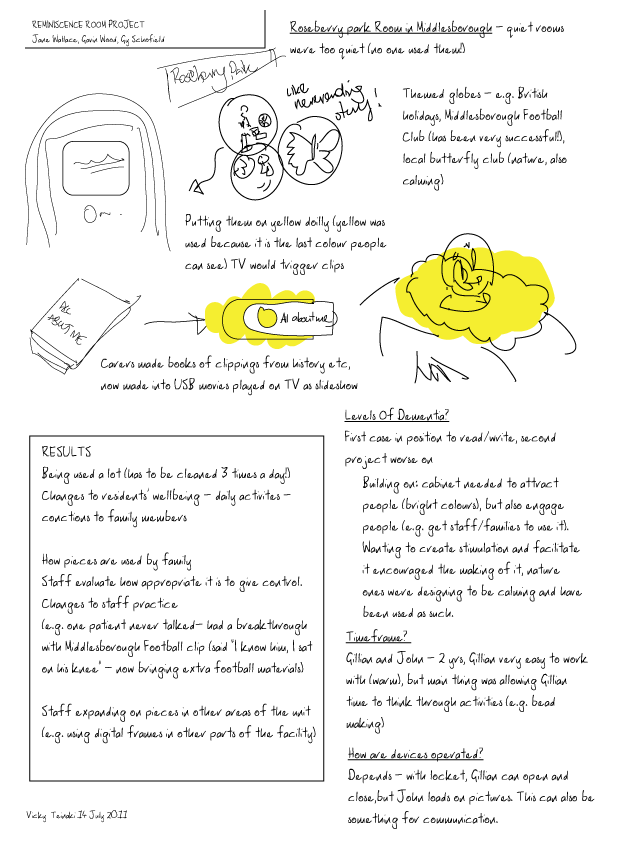 REMINISCENCE ROOM PROJECT
Jane Wallace, Gavin Wood, Gy Schofield
Roseberry park Room in Middlesborough – quiet rooms
were too quiet (no one used them!)
Roseberry Park
Like
neverending
story!
Themed globes – e.g. British
holidays, Middlesborough Football
Club (has been very successful!),
local butterfly club (nature, also
calming)
Putting them on yellow doilly (yellow was
used because it is the last colour people
can see) TV would trigger clips
ALL
ABOUT ME
Al about me
Carers made books of clippings from history etc,
now made into USB movies played on TV as slideshow
RESULTS
Being used a lot (has to be cleaned 3 times a day!)
Changes to residents' wellbeing – daily activites –
conctions to family members
How pieces are used by family
Staff evaluate how appropriate it is to give control.
Changes to staff practice
(e.g. one patient never talked– had a breakthrough
with Middlesborough Football clip (said "I know him, I sat
on his knee" – now bringing extra football materials)
Staff expanding on pieces in other areas of the unit
(e.g. using digital frames in other parts of the facility)
Levels Of Dementia?
First case in position to read/write, second
project worse on
Building on: cabinet needed to attract
people (bright colours), but also engage
people (e.g. get staff/families to use it).
Wanting to create stimulation and facilitate
it encouraged the making of it, nature
ones were designing to be calming and have
been used as such.
Timeframe?
Gillian and John – 2 yrs, Gillian very easy to work
with (warm), but main thing was allowing Gillian
time to think through activities (e.g. bead
making)
How are devices operated?
Depends – with locket, Gillian can open and
close,but John loads on pictures. This can also be
something for communication.
Vicky Teinaki 14 July 2011